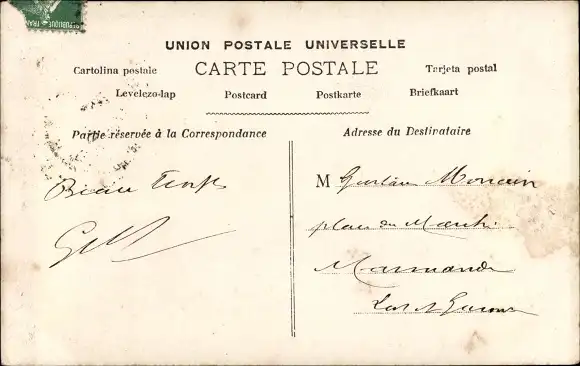 UNION POSTALE UNIVERSELLE
CARTE POSTALE
Cartolina postale
Tarjeta postal
Levelezo-lap
Postcard
Postkarte
Briefkaart
Partie réservée à la Correspondance
Adresse du Destinataire
Beau temps
M Gustave
place du Marché
Marmande
Lot et Garonne